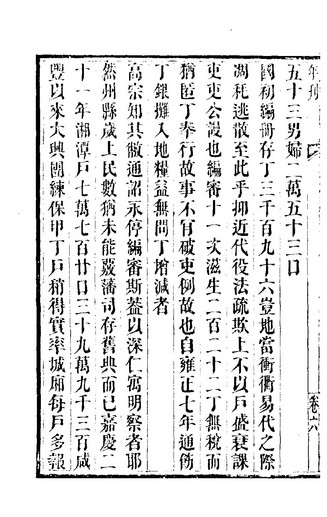 五十三男婦二萬五十三口
國初編冊存丁三千百九十六豈地當衝衢易代之際
凋耗逃散至此乎抑近代役法疏欺上不以戶盛衰課
吏吏公設也編審十一次滋生二百二十二丁無稅而
猶匿丁奉行故事不官破吏例故也自雍正七年通飭
丁銀攤入地糧益無問丁增減者
高宗知其敝通詔永停編審斯蓋以深仁寓明察者耶
然州縣歲上民數猶未能覈藩司存舊典而已嘉慶二
十一年湘潭戶七萬七百廿口三十九萬九千三百咸
豐以來大興團練保甲丁戶稍得實率城廂每戶多報
卷六